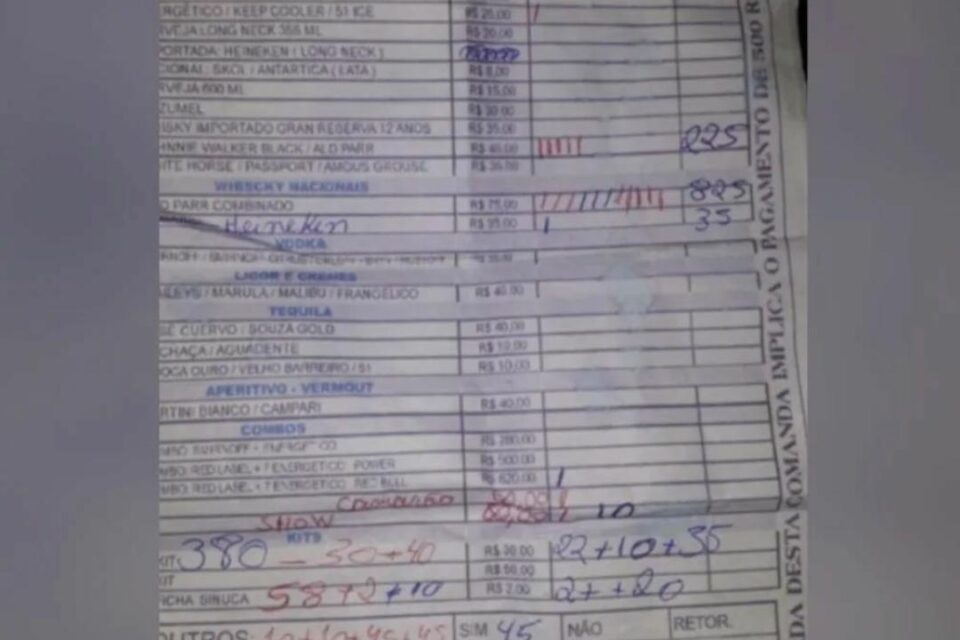 RGÉTICO / KEEP COOLER / 51 ICE R$ 20,00
RVEJA LONG NECK 355 ML R$ 20,00
PORTADA: HEINEKEN ( LONG NECK )
CIONAL: SKOL / ANTARTICA ( LATA ) R$ 8,00
RVEJA 600 ML R$ 15,00
ZUMEL R$ 30,00
ISKY IMPORTADO GRAN RESERVA 12 ANOS R$ 35,00
HNNIE WALKER BLACK / ALD PARR R$ 45,00 225
ITE HORSE / PASSPORT / AMOUS GROUSE
WIESCKY NACIONAIS
D PARR COMBINADO R$ 75,00 825
Heineken R$ 35,00 35
VODKA
LICOR E CREMES
ILEYS / MARULA / MALIBU / FRANGELICO R$ 40,00
TEQUILA
SE CUERVO / SOUZA GOLD R$ 40,00
CHAÇA / AGUADENTE R$ 10,00
OCA OURO / VELHO BARREIRO / 51 R$ 10,00
APERITIVO - VERMOUT
RTINI BIANCO / CAMPARI R$ 40,00
COMBOS
R$ 280,00
MBO RED LABEL + 7 ENERGETICO POWER R$ 500,00
MBO RED LABEL + 7 ENERGETICO RED BULL R$ 620,00
Camarão
SHOW 10
KITS
KIT 380 - 30+40 R$ 30,00 22+10+35
KIT R$ 50,00
FICHA SINUCA 58+2+10 R$ 2,00 2+ +20
OUTROS: SIM 45 NÃO RETOR.
DA DESTA COMANDA IMPLICA O PAGAMENTO DE 500 R